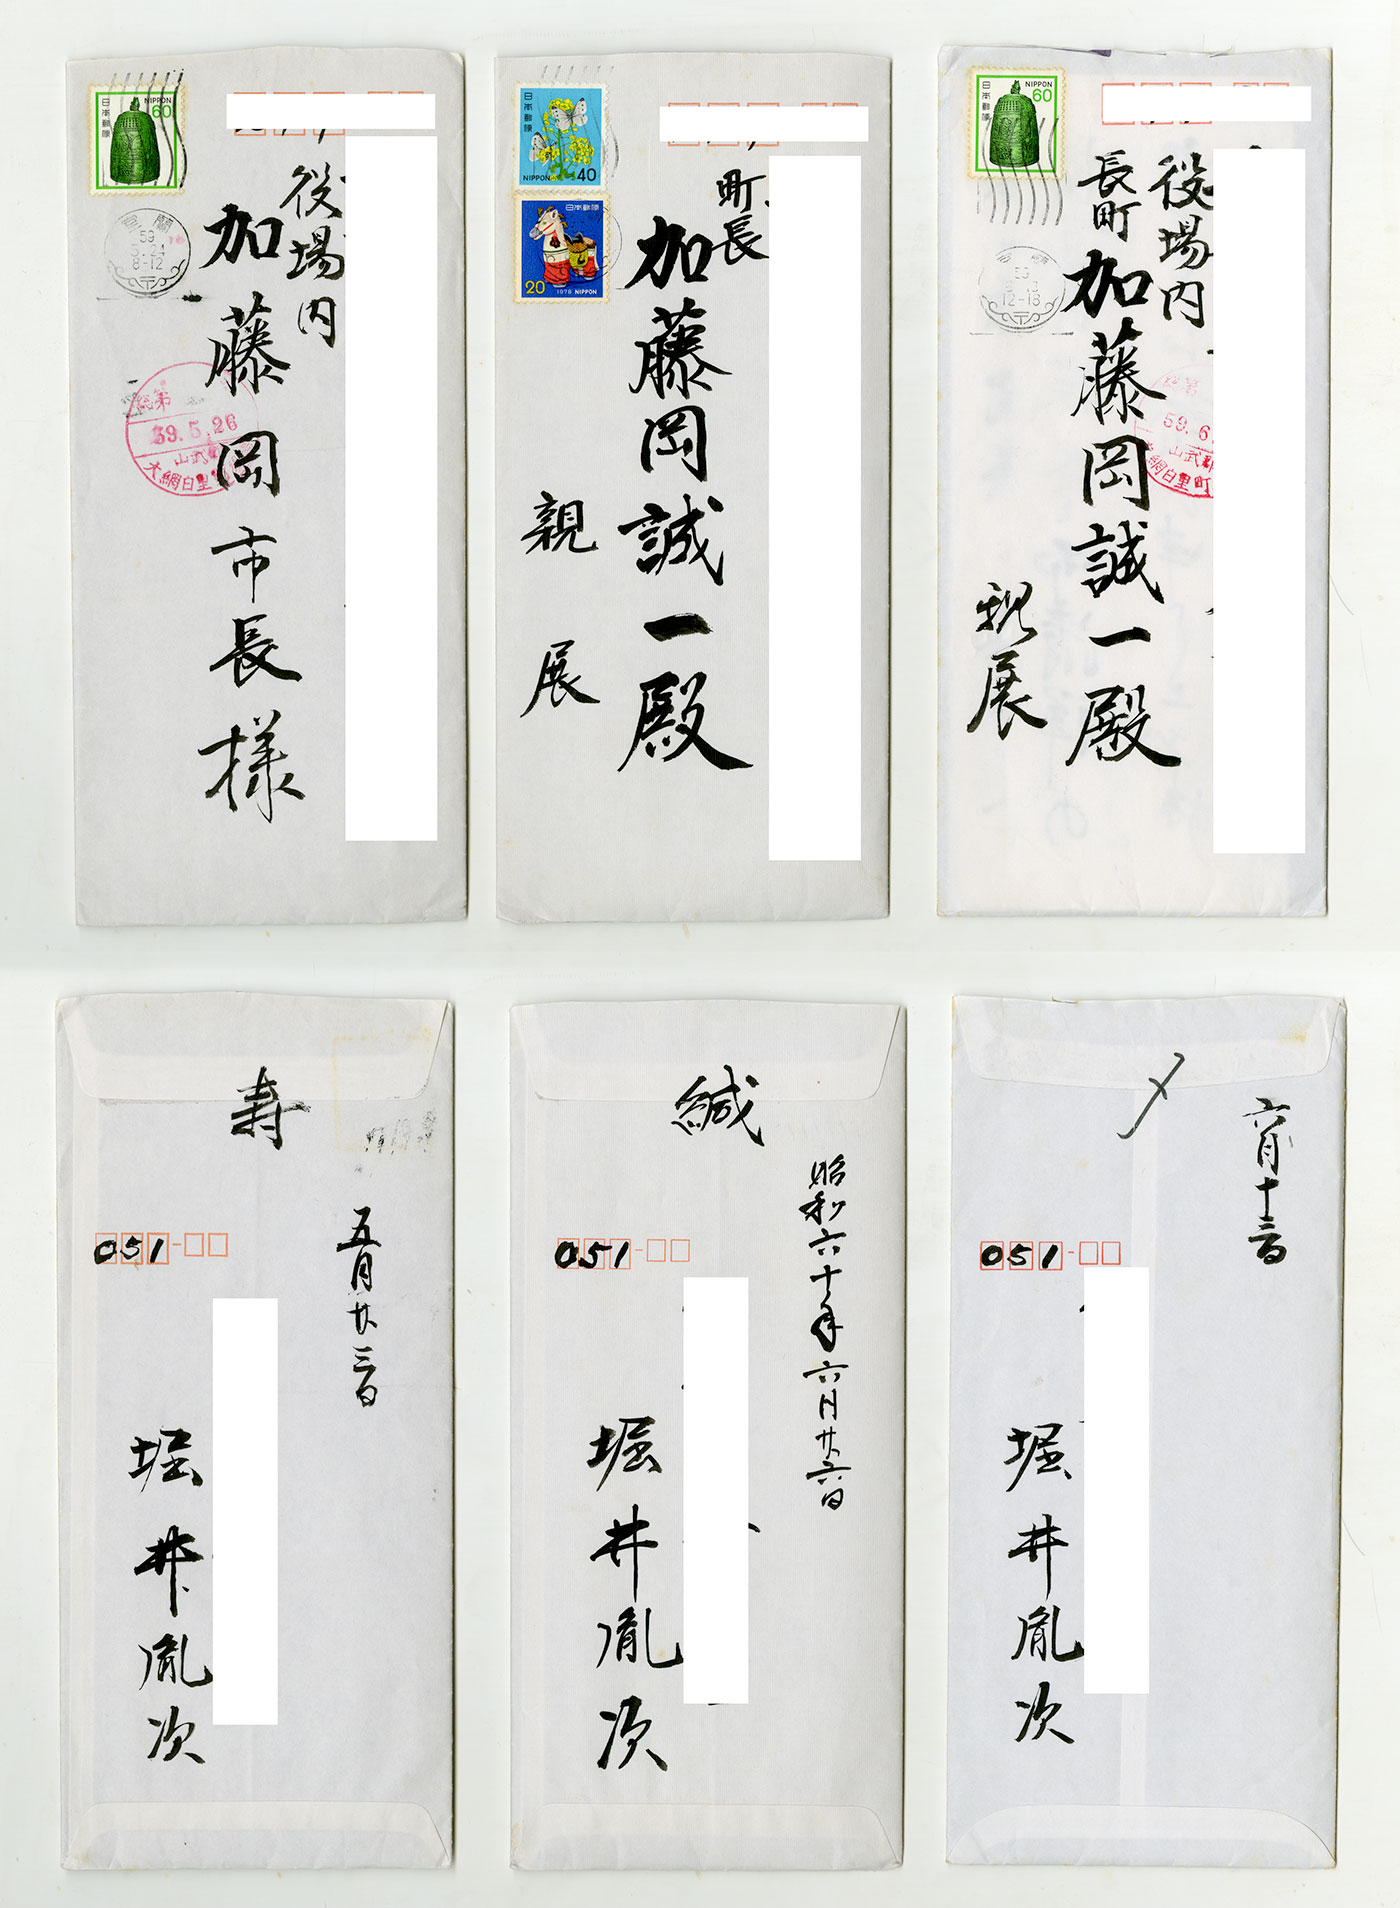 日本郵便
NIPPON
60
室蘭
59
5.24
8-12
役場内
加藤岡市長様
総第
59.5.26
山武
大網白里
日本郵便
NIPPON 40
日本郵便
20
1978 NIPPON
町長
加藤岡誠一殿
親展
日本郵便
NIPPON
60
59
12-18
役場内
長町
加藤岡誠一殿
親展
総第
59.6
山武郡
大網白里町
寿
五月廿三日
051
堀井胤次
緘
昭和六十年六月廿六日
051
堀井胤次
〆
六月十三日
051
堀井胤次